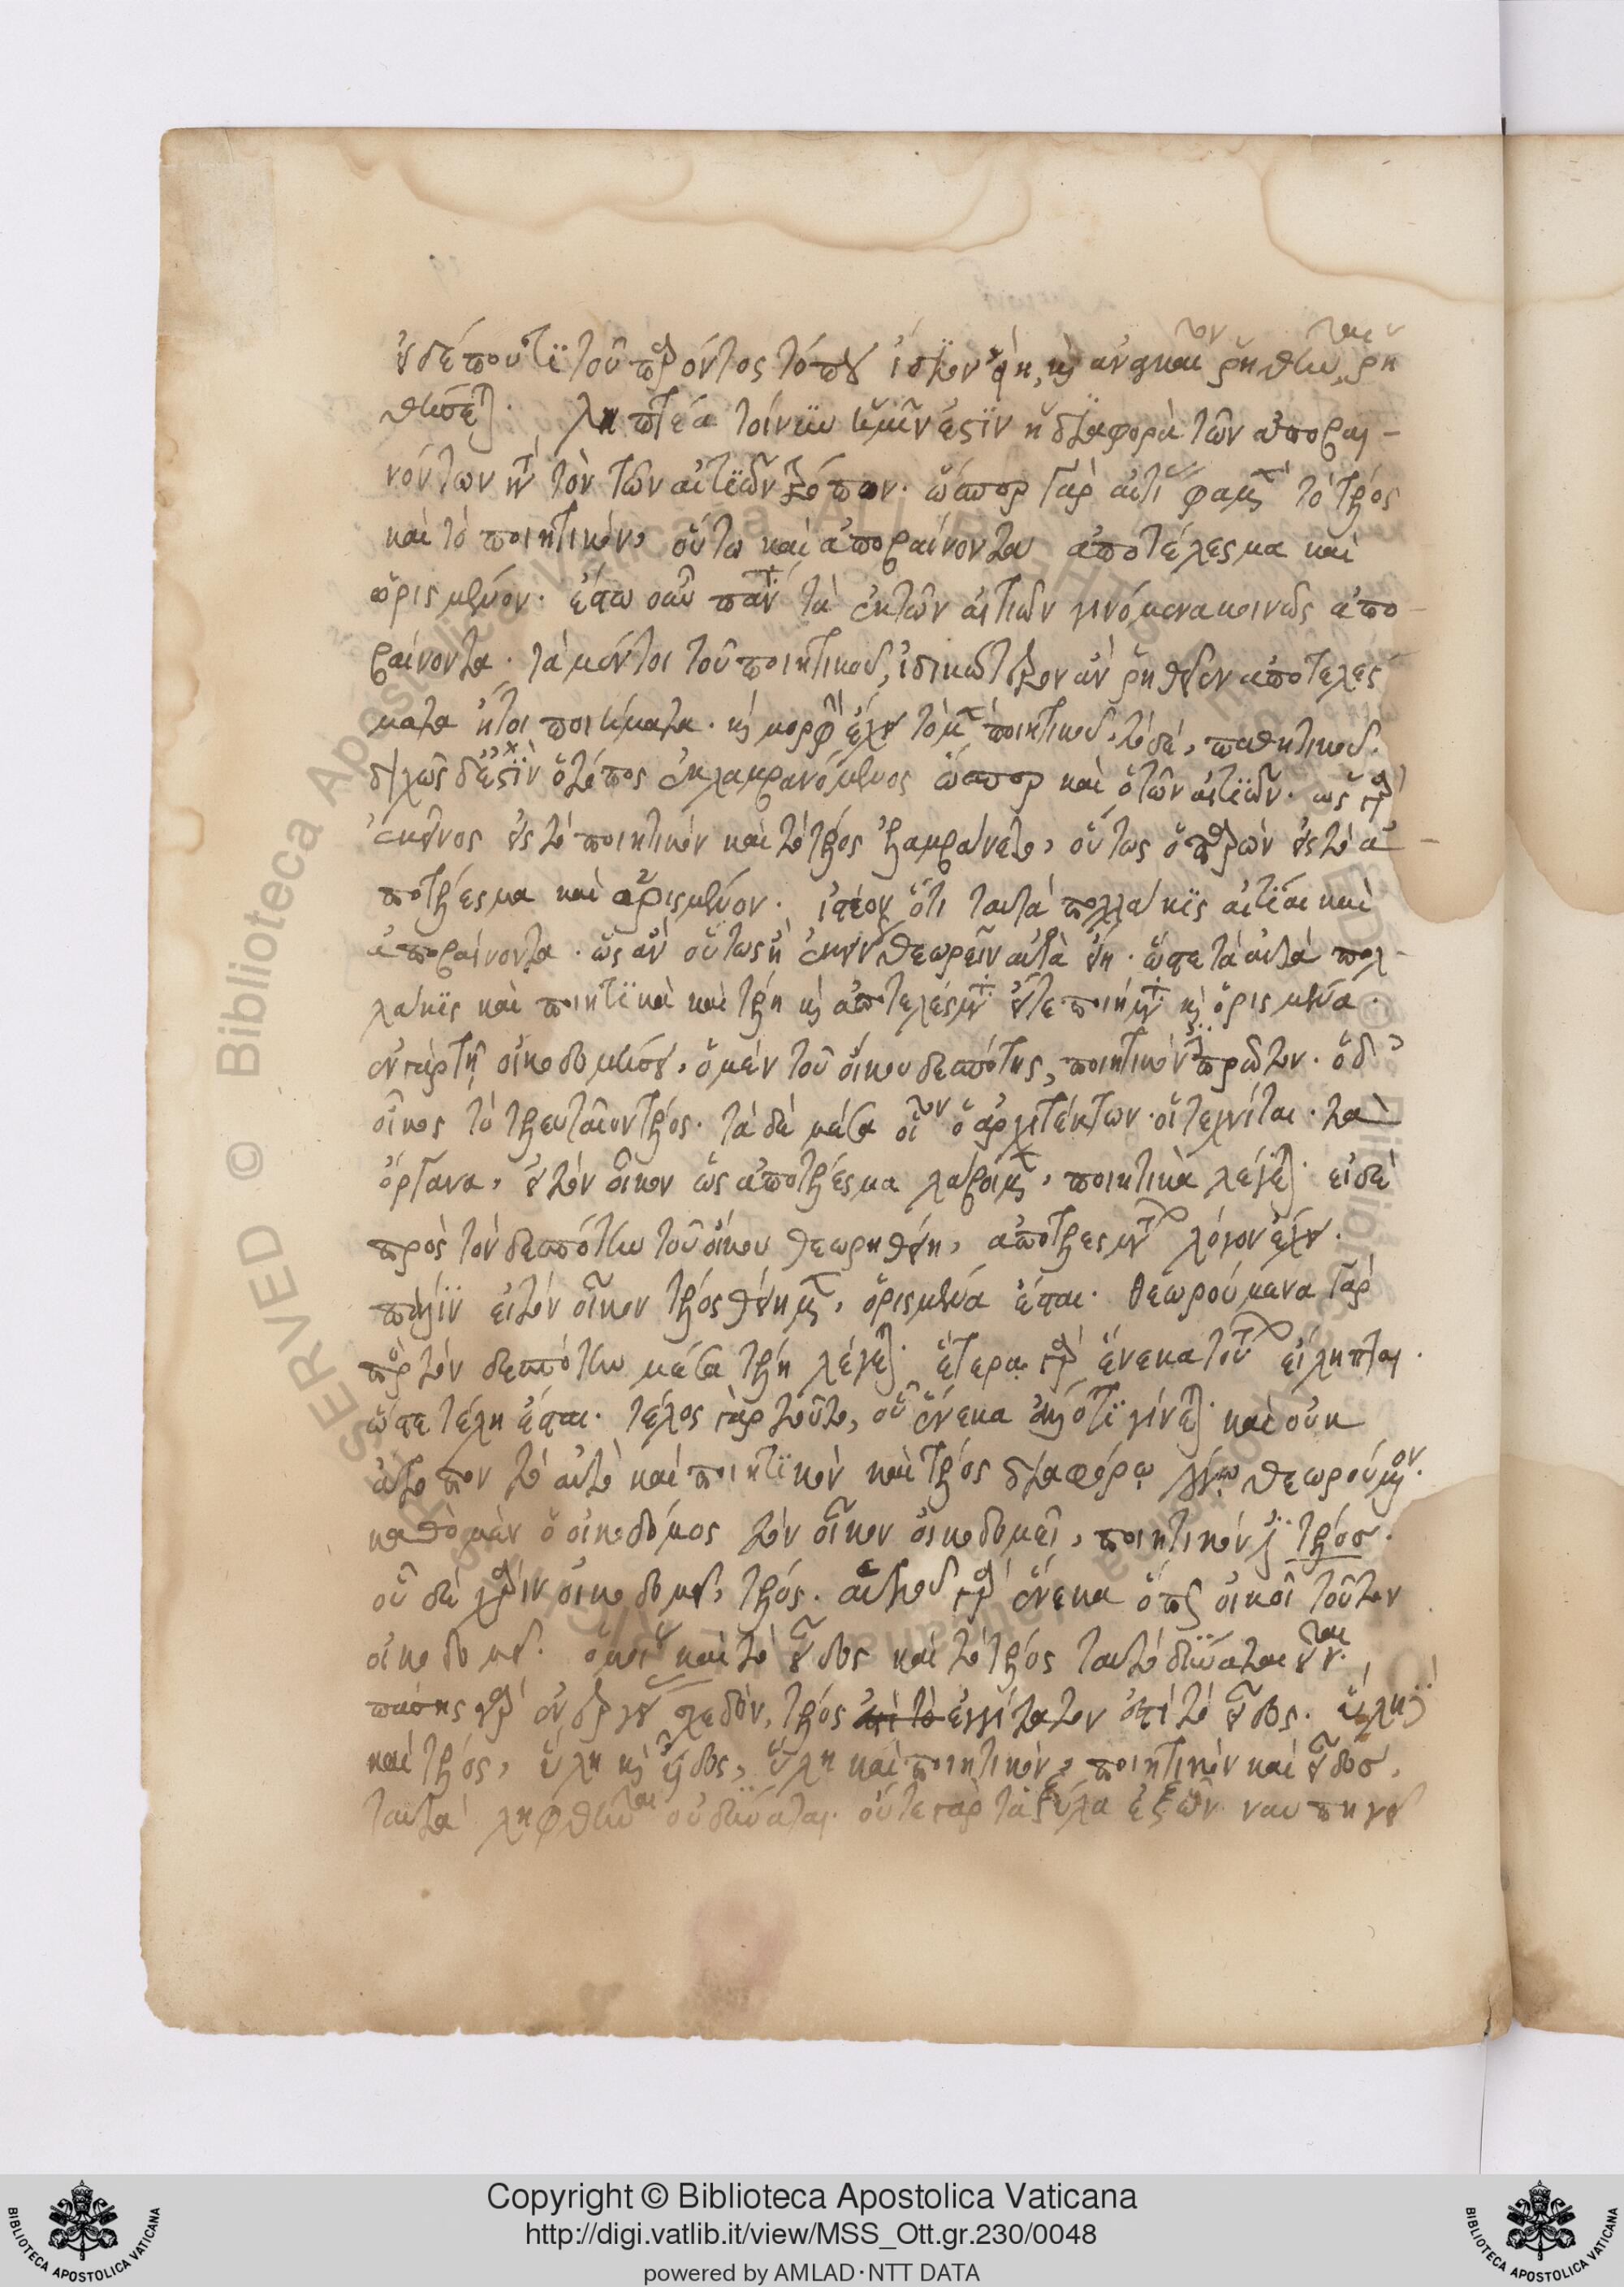 εἰ δέ που τι τοῦ παρόντος τόπου ἴδιον εἴη, καὶ ἀναγκαῖον ῥηθῆναι, ῥη
θήσεται. ληπτέα τοίνυν ἡμῖν ἐστὶν ἡ διαφορὰ τῶν ἀποβαι-
νόντων κατὰ τὸν τῶν αἰτιῶν τρόπον. ὥσπερ γὰρ αἴτιον φαμὲν τὸ τέλος
καὶ τὸ ποιητικὸν, οὕτω καὶ ἀποβαίνοντα ἀποτέλεσμα καὶ
ὡρισμένον. ἔστω οὖν πάντα τὰ ἐκ τῶν αἰτιῶν γινόμενα κοινῶς ἀπο-
βαίνοντα. τὰ μέντοι τοῦ ποιητικοῦ, ἰδικώτερον ἂν ῥηθεῖεν ἀποτελέσ
ματα ἤτοι ποιήματα. καὶ μορφὴν ἔχει τὸ μὲν ποιητικοῦ, τὸ δὲ, παθητικοῦ.
διχῶς δέ ἐστιν ὁ τόπος ἐκλαμβανόμενος ὥσπερ καὶ ὁ τῶν αἰτιῶν. ὡς γὰρ
ἐκεῖνος εἰς τὸ ποιητικὸν καὶ τὸ τέλος ἐλαμβάνετο, οὕτως ὁ παρὼν εἰς τὸ ἀ-
ποτέλεσμα καὶ ὡρισμένον. ἰστέον ὅτι ταὐτὰ πολλάκις αἰτίαι καὶ
ἀποβαίνοντα. ὡς ἂν οὕτως ἢ ἐκείνως θεωρεῖν αὐτὰ εἴη. ὥστε τὰ αὐτὰ πολ-
λάκις καὶ ποιητικὰ καὶ τέλη καὶ ἀποτελέσματα εἴτε ποιήματα καὶ ὁρισμένα.
ἐν γὰρ τῇ οἰκοδομήσει, ὁ μὲν τοῦ οἴκου δεσπότης, ποιητικὸν ἐστι πρῶτον. ὁ δ'
οἶκος τὸ τελευταῖον τέλος. τὰ δὲ μέσα οἷον ὁ ἀρχιτέκτων. οἱ τεχνῖται. τὰ
ὄργανα, εἰ τὸν οἶκον ὡς ἀποτέλεσμα λάβοιμεν, ποιητικὰ λέγεται. εἰ δὲ
πρὸς τὸν δεσπότην τοῦ οἴκου θεωρηθείη, ἀποτελεσμάτων λόγον ἔχει.
πάλιν εἰ τὸν οἶκον τέλος θείημεν, ὁρισμένα ἔσται. θεωρούμενα γὰρ
πρὸς τὸν δεσπότην μέσα τέλη λέγεται. ἕτερα γὰρ ἕνεκα τούτων εἴληπται.
ὥστε τέλη ἔσται. τέλος γὰρ τοῦτο, οὗ ἕνεκα ἄλλό τι γίνεται. καὶ οὐκ
ἄτοπον τὸ αὐτὸ καὶ ποιητικὸν καὶ τέλος διαφόρῳ λόγῳ θεωρούμενον.
καθὸ μὲν ὁ οἰκοδόμος τὸν οἶκον οἰκοδομεῖ, ποιητικόν ἐστι τέλοσ.
οὗ δὲ χάριν οἰκοδομεῖ, τέλος. αὐτοῦ γὰρ ἕνεκα ὅπως οἰκοῖ τοῦτον
οἰκοδομεῖ. ὁμοίως καὶ τὸ εἶδος καὶ τὸ τέλος ταυτὸ δύναται εἶναι.
πάσης γὰρ ἐνεργείας σχεδὸν, τέλος ἐγγύτατον ἐστὶ τὸ εἶδος. ὕλη
καὶ τέλος, ὕλη καὶ εἶδος, ὕλη καὶ ποιητικὸν, ποιητικὸν καὶ εἶδοσ,
ταυτὰ ληφθῆναι οὐ δύναται. οὔτε γὰρ τὰ ξύλα ἐξ ὧν ναυπηγεῖ
Copyright © Biblioteca Apostolica Vaticana
http://digi.vatlib.it/view/MSS_Ott.gr.230/0048
powered by AMLAD·NTT DATA